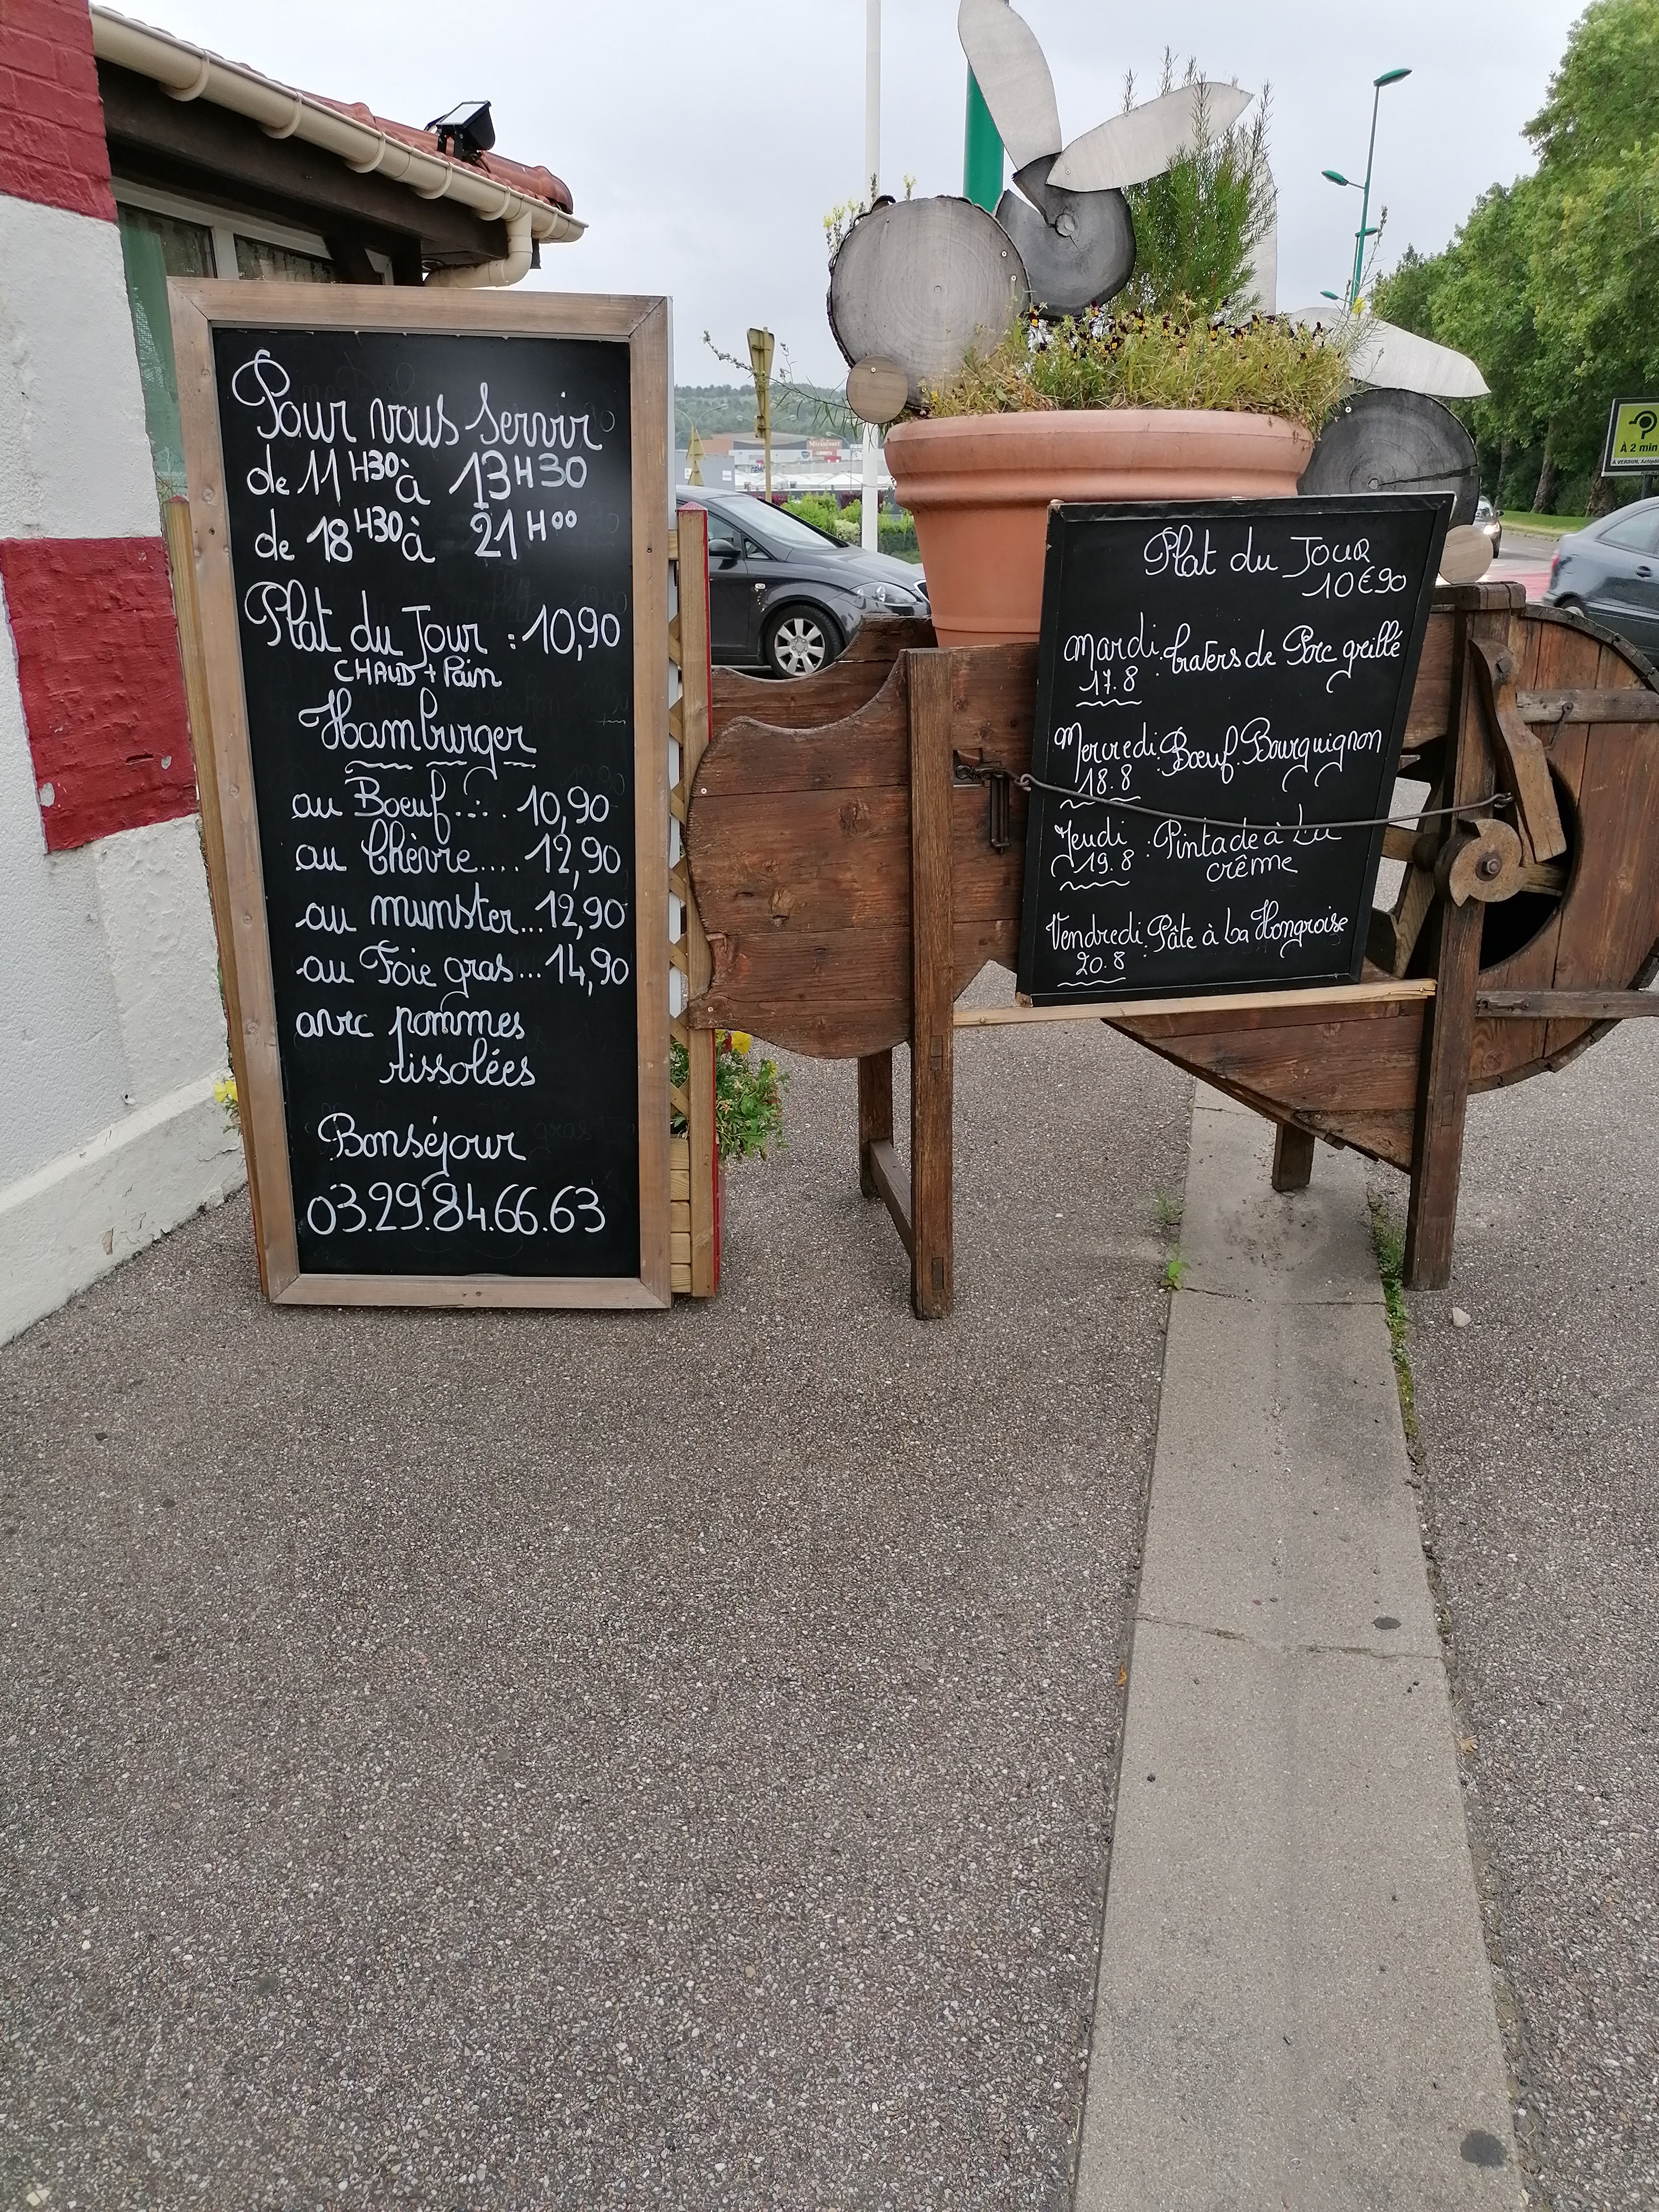 Pour vous servir
de 11H30 à 13H30
de 18H30 à 21H00
Plat du Jour : 10,90
CHAUD + Pain
Hamburger
au Boeuf.... 10,90
au Chèvre.... 12,90
au munster...12,90
au Foie gras...14,90
avec pommes
rissolées
Bonséjour
03.29.84.66.63
Plat du JOUR
10€90
Mardi : travers de Porc grillé
17.8
Mercredi : Bœuf Bourguignon
18.8
Jeudi : Pintade à La
19.8 crême
Vendredi : Pâte à La Hongroise
20.8
À 2 min